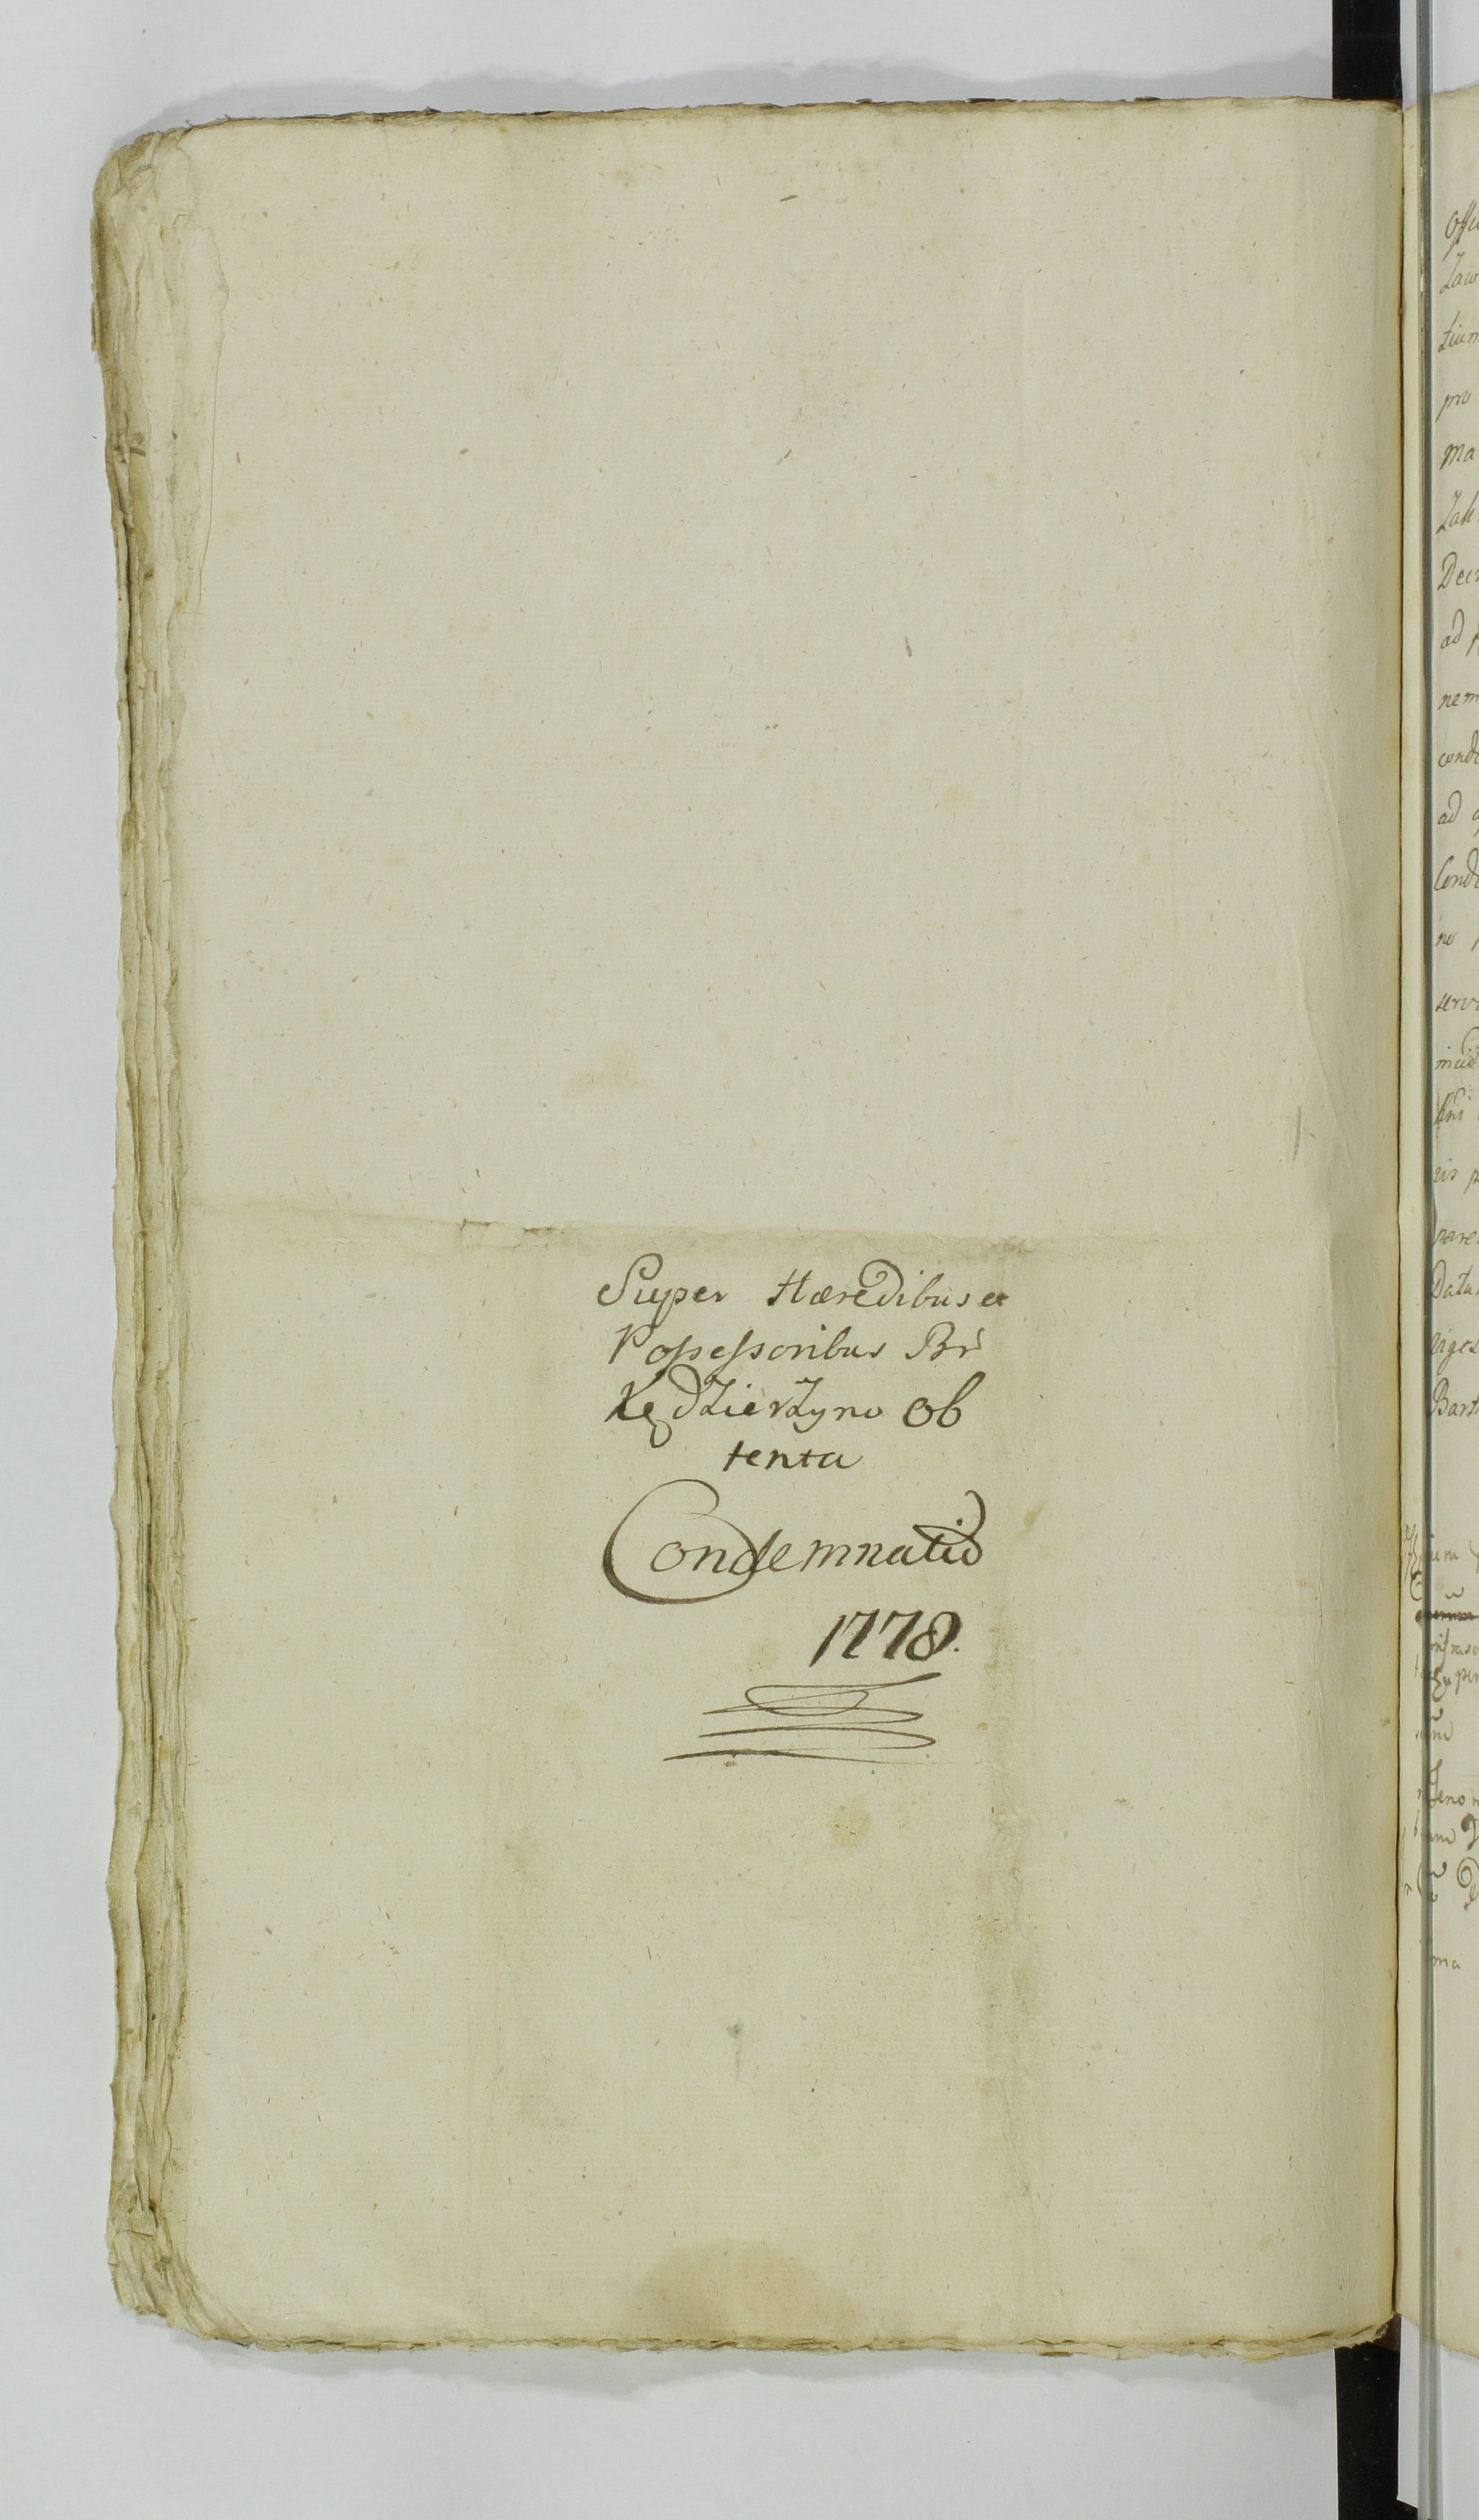 Super Hæredibus et
Possessoribus Br
Kędzierzyno ob
tenta
Condemnatio
1778.